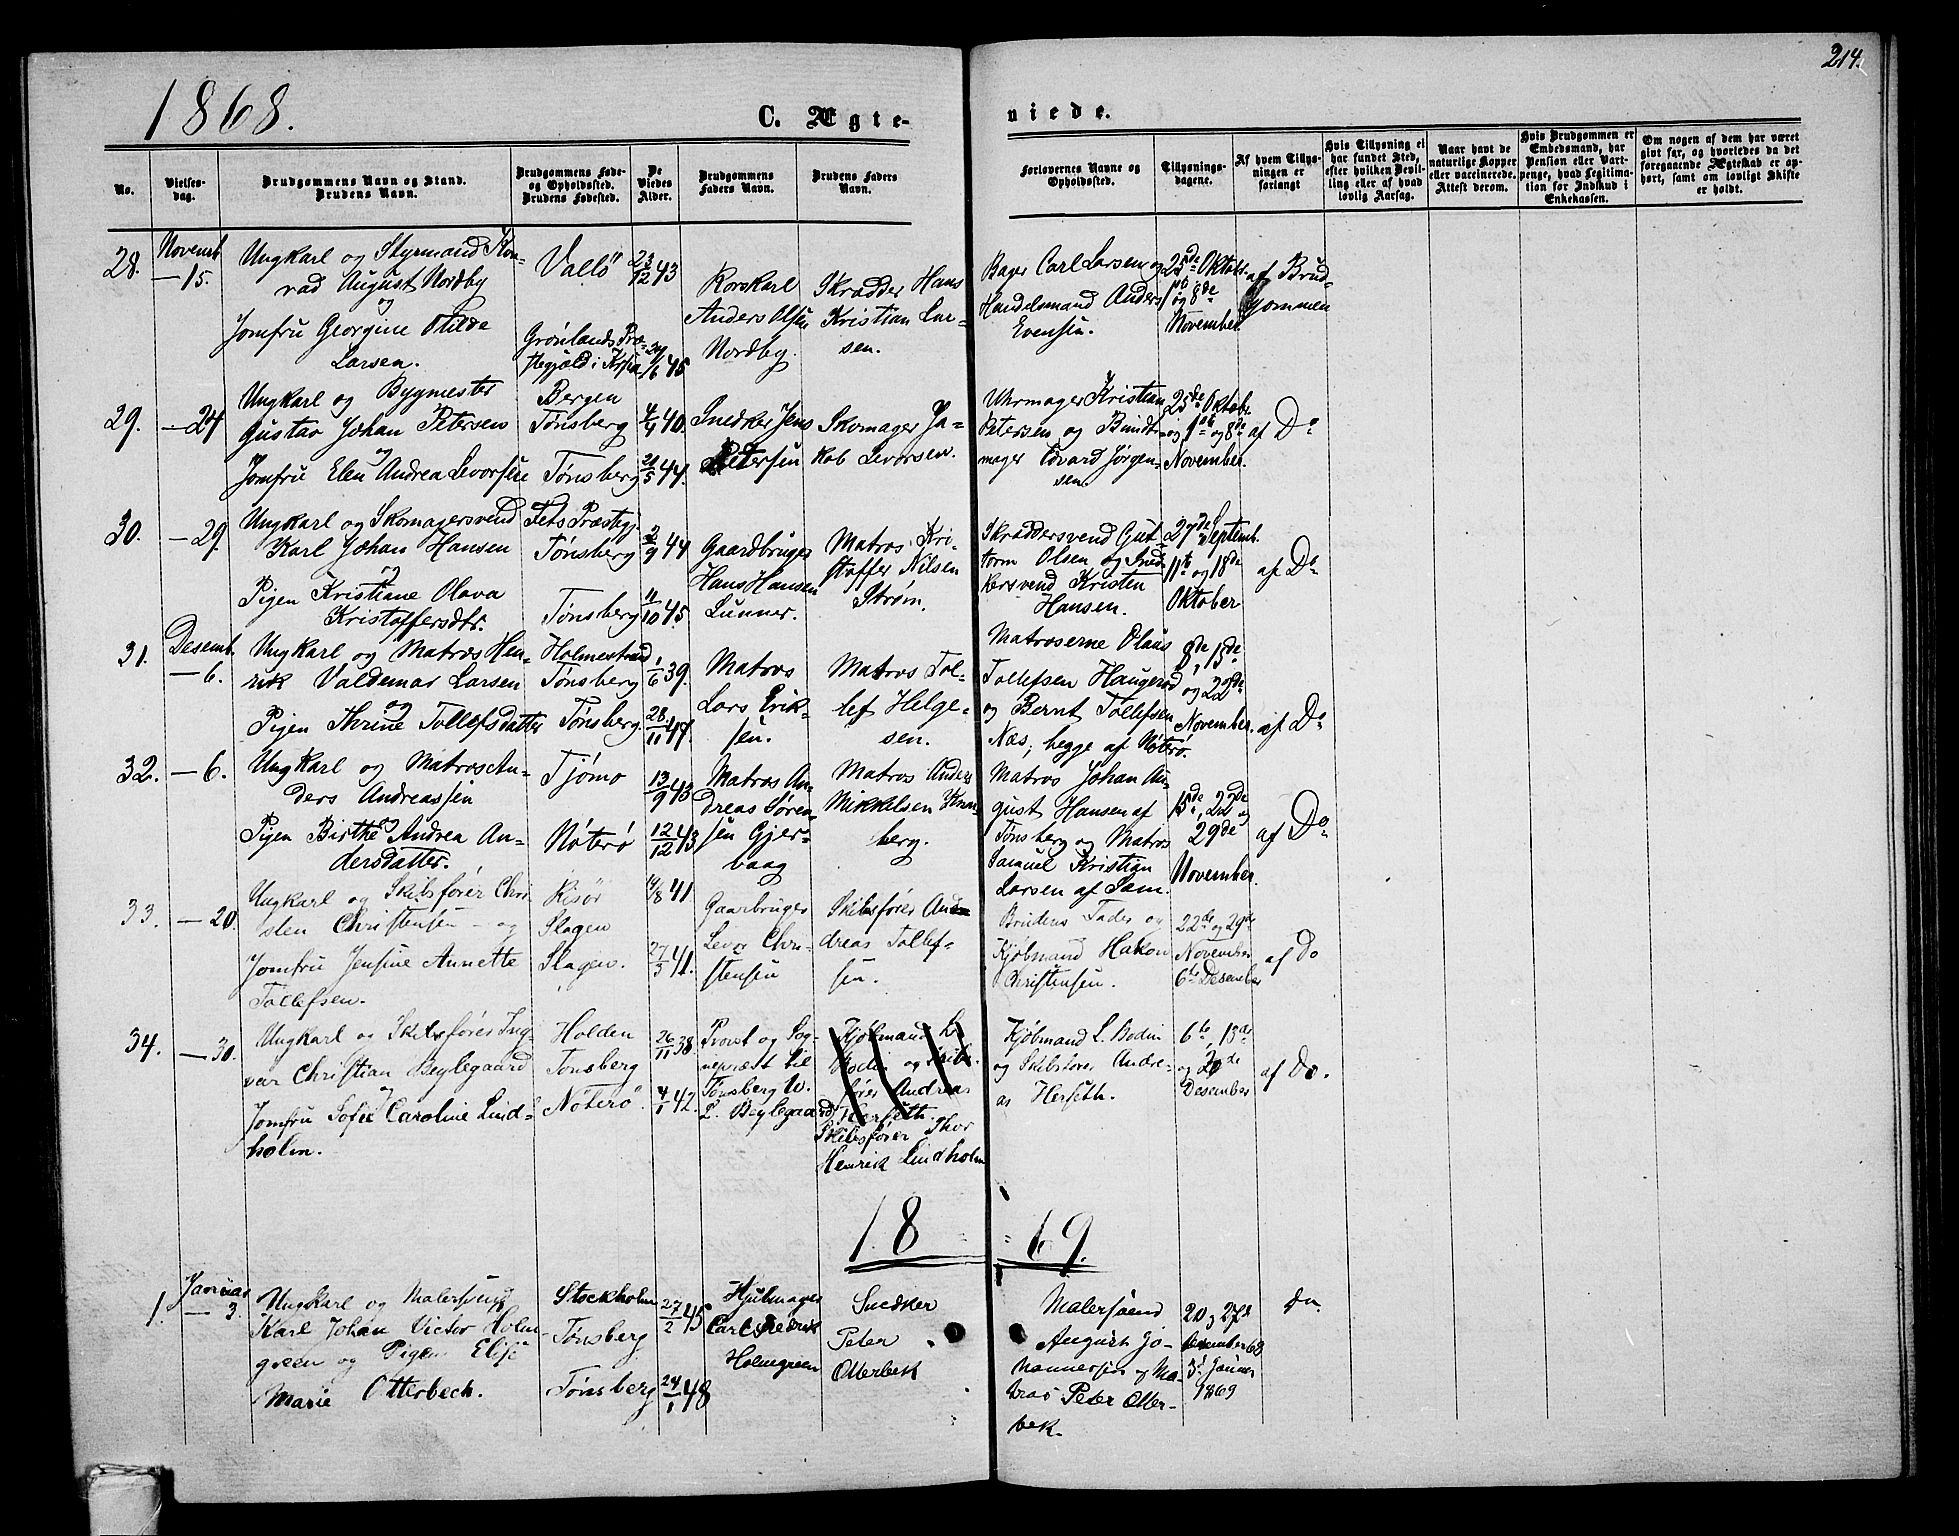 214.
1868.
C. Ægte-
viede.
No.
Vielses-
dag.
Brudgommens Navn og Stand.
Brudens Navn.
Brudgommens Føde-
og Opholdssted.
Brudens Fødested.
De
Viedes
Alder.
Brudgommens
Faders Navn.
Brudens Faders
Navn.
Forlovernes Navne og
Opholdssted.
Tillysnings-
dagene.
Af hvem Tillys-
ningen er
forlangt
Hvis Tillysning ei
har fundet Sted,
efter hvilken Bevil-
ling eller af hvad
lovlig Aarsag.
Naar havt de
naturlige Kopper
eller vaccinerede.
Attest derom.
Hvis Brudgommen er
Embedsmand, har
Pension eller Vart-
penge, hvad Legitima-
tion for Indskud i
Enkekassen.
Om nogen af dem har været
gift før, og hvorledes da det
foregaaende Ægteskab er op-
hørt, samt om lovligt Skifte
er holdt.
28.
Novemb.
— 15.
Ungkarl og Styrmand Kon-
rad August Nordby
og
Jomfru Georgine Otilde
Larsen.
Vallö
Grønlands Præ-
stegjæld i Krſtia
23/12 43
24/6 45
Korskarl
Anders Olsen
Nordby.
Skrædder Hans
Kristian Lar-
sen.
Bager Carl Larsen og
Handelsmand Anders
Evensen.
25de Oktob.
1ste og 8de
November.
af Brud-
gommen
29.
— 24
Ungkarl og Bygmester
Gustav Johan Petersen
og
Jomfru Elen Andrea Levorsen
Bergen
Tønsberg
Tønsberg
4/4 40.
21/5 44.
Snedker Jens
Petersen
Skomager Ja-
kob Levorsen.
Uhrmager Kristian
Petersen og Bundt-
mager Edvard Jørgen-
sen.
25de Oktob.
og 1ste og 8de
November.
af Do
30.
— 29.
Ungkarl og Skomagersvend
Karl Johan Hansen
og
Pigen Kristiane Olava
Kristoffersdtr.
Fets Præstegj.
Tønsberg
Tønsberg
2/9 44
11/10 45.
Gaardbruger
Hans Hansen
Lunner.
Matros Kri-
stoffer Nilsen
Strøm.
Skræddersvend Gut-
torm Olsen og Sned-
kersvend Kristen
Hansen.
27de Septemb.
11te og 18de
Oktober
af Do
31.
Desemb.
— 6.
Ungkarl og Matros Hen-
rik Valdemar Larsen
og
Pigen Thrine Tollefsdatter
Holmestrand
Tønsberg
Tønsberg.
1/6 39.
28/11 47.
Matros
Lars Erik-
sen.
Matros Tol-
lef Helge-
sen.
Matroserne Olaus
Tollefsen Haugerød
og Bernt Tollefsen
Næs, begge af Nøterø.
8de, 15de
og 22de
November.
af Do
32.
— 6.
Ungkarl og Matros An-
ders Andreassen
og
Pigen Birthe Andrea An-
dersdatter.
Tjømø
Nøterø
13/9 43
12/12 43
Matros An-
dreas Søren-
sen Gjer-
vaag
Matros Anders
Mikkelsen
berg.
Matros Johan Au-
gust Hansen af
Tønsberg og Matros
Samuel Kristian
Larsen af Sem.
15de, 22de og
29de
November.
af Do
33.
— 20.
Ungkarl og Skibsfører Chri-
sten Christensen — og
Jomfru Jensine Annette
Tollefsen.
Risör
Slagen
Slagen.
19/8 41
27/3 41.
Gaarbruger
Levor Chri-
stensen
Skibsfører An-
dreas Tollef-
sen.
Brudens Fader og
Kjøbmand Hakon
Christensen.
22de og 29de
November
6te Desember
af Do
34.
— 30.
Ungkarl og Skibsfører Ing-
var Christian Beylegaard
og
Jomfru Sofie Caroline Lind-
holm.
Holden
Tønsberg
Nøterö
26/11 38
4/1 42.
Provst og Sog-
nepræst til
Tønsberg W.
L. Beylegaard
Kjøbmand L.
Bodin og Skibs-
fører Andreas
Herseth.
Skibsfører Thor
Henrik Lindholm
Kjøbmand L. Bodin
og Skibsfører Andre-
as Herseth.
6te, 13de
og 20de
Desember
af Do.
18 69.
1.
Januar
— 3.
Ungkarl og Malersvend
Karl Johan Victor Holm-
green og Pigen Elise
Marie Otterbech.
Stockholm
Tønsberg
Tønsberg
27/2 45
24/1 48
Hjulmager
Carl Fredrik
Holmgreen
Snedker
Peter
Otterbeck
Malersvend
August Jo-
hannessen og Ma-
tros Peter Otter-
bek.
20 og 27de
Desember 68
3de Januar
1869
Do